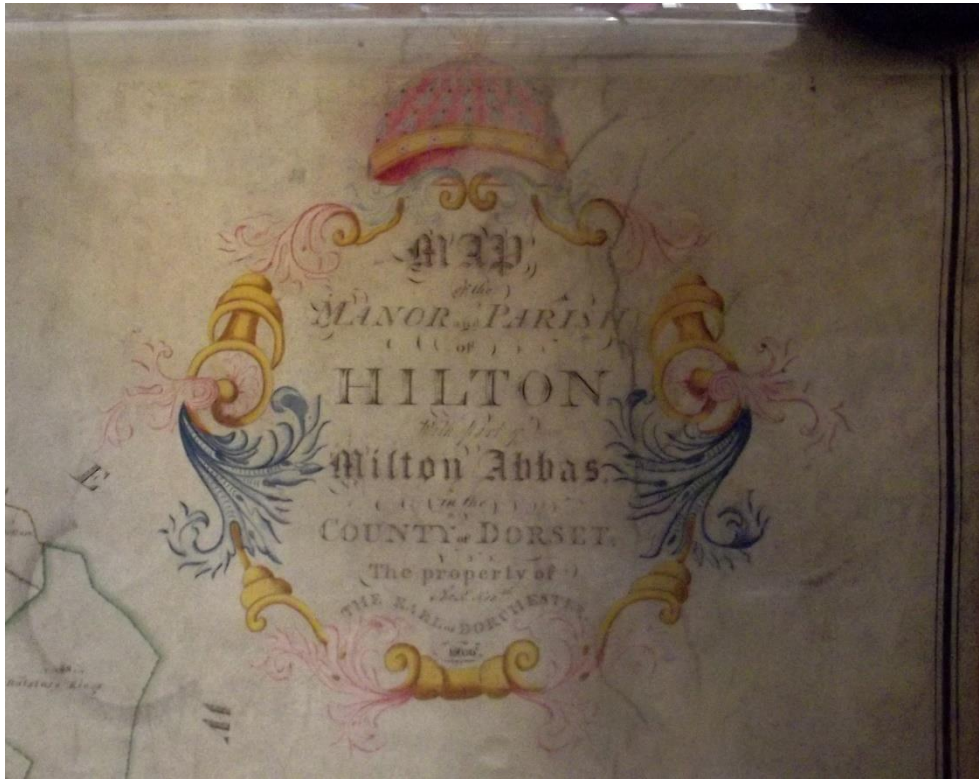 MAP,
of the
MANOR and PARISH
OF
HILTON
With Part of
Milton Abbas.
in the
COUNTY of DORSET.
The property of
THE EARL of DORCHESTER
E
Ridge